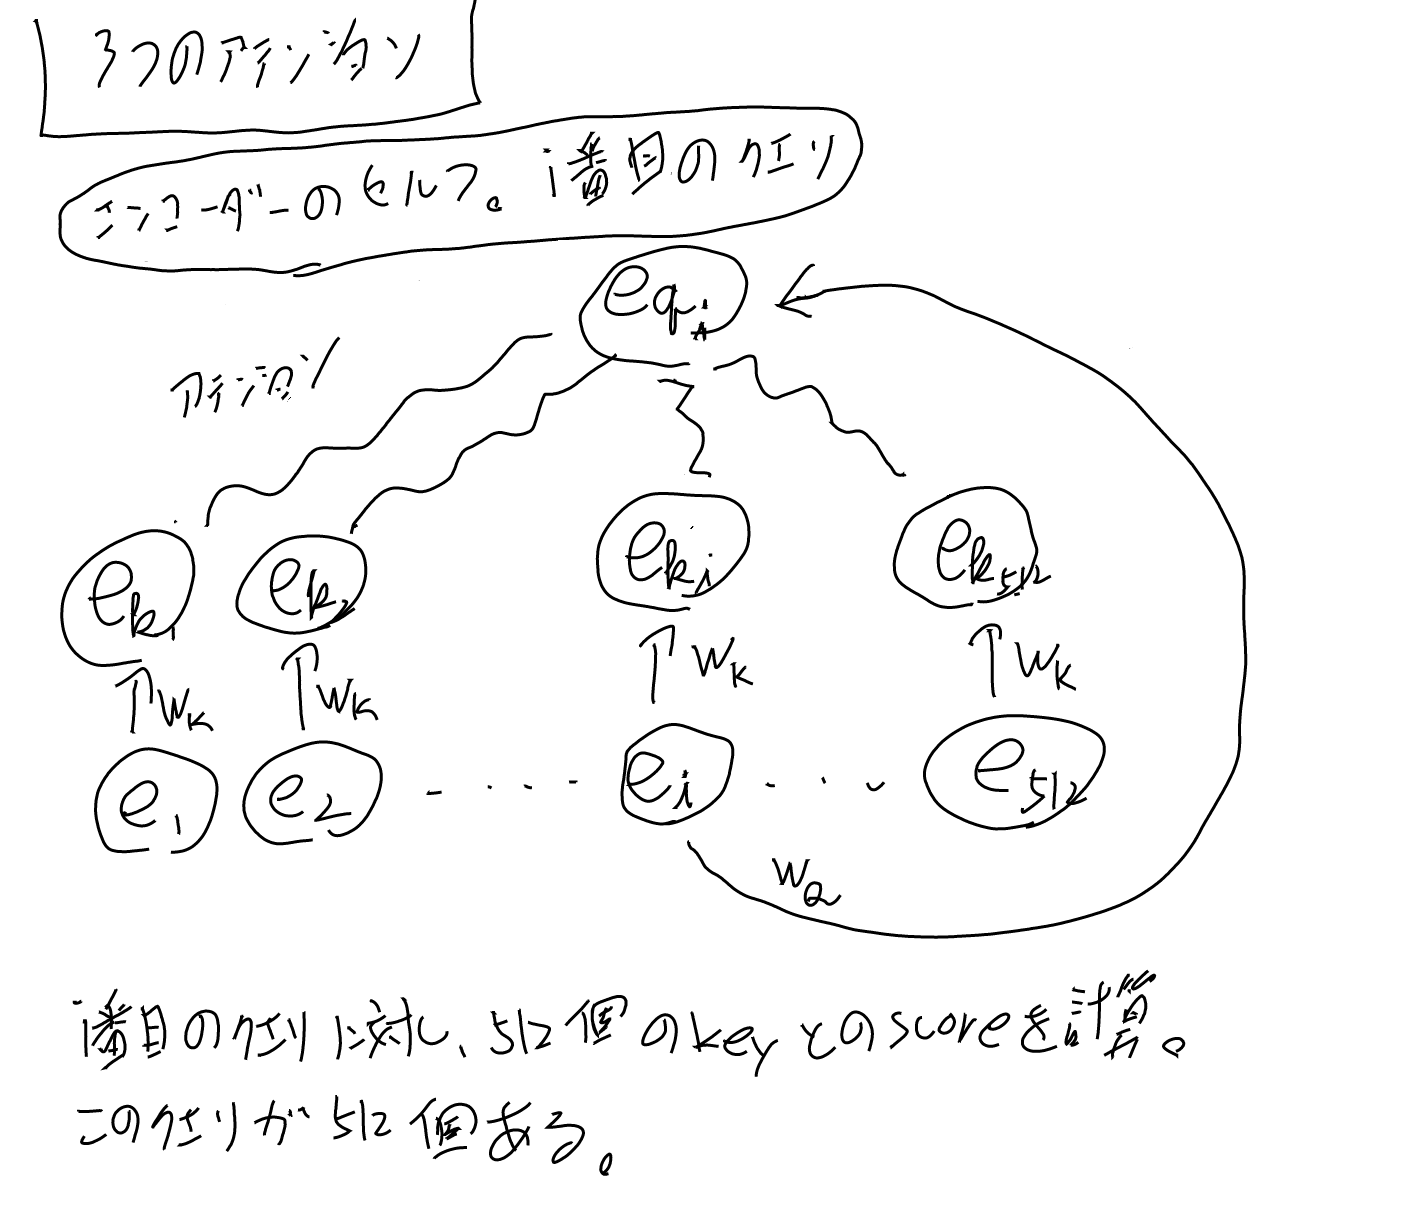 3つのアテンション
エンコーダーのセルフ。i番目のクエリ
eqi
アテンション
ek1 ek2 eki ek512
↑WK ↑WK ↑WK ↑WK
e1 e2 - · · · - ei · · · e512
WQ
i番目のクエリに対し、512個のkeyとのscoreを計算。
このクエリが512個ある。